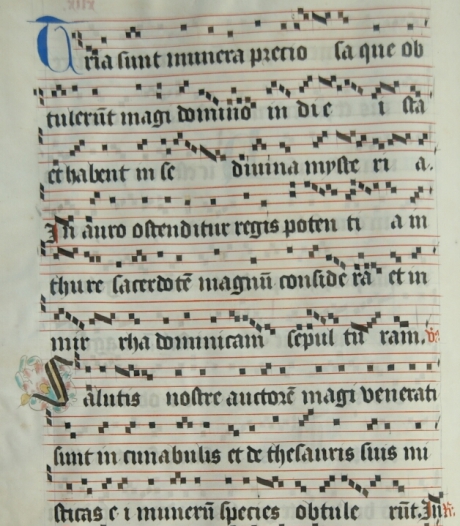 Tria sunt munera precio sa que ob
tulerūt magi domino in die i sta
et habent in se diuina myste ri a.
In auro ostenditur regis poten ti a in
thure sacerdotē magnū conside ra et in
mir rha dominicam sepul tu ram.
Salutis nostre auctorē magi venerati
sunt in cunabulis et de thesauris suis mi
sticas e i munerū species obtule rūt. In